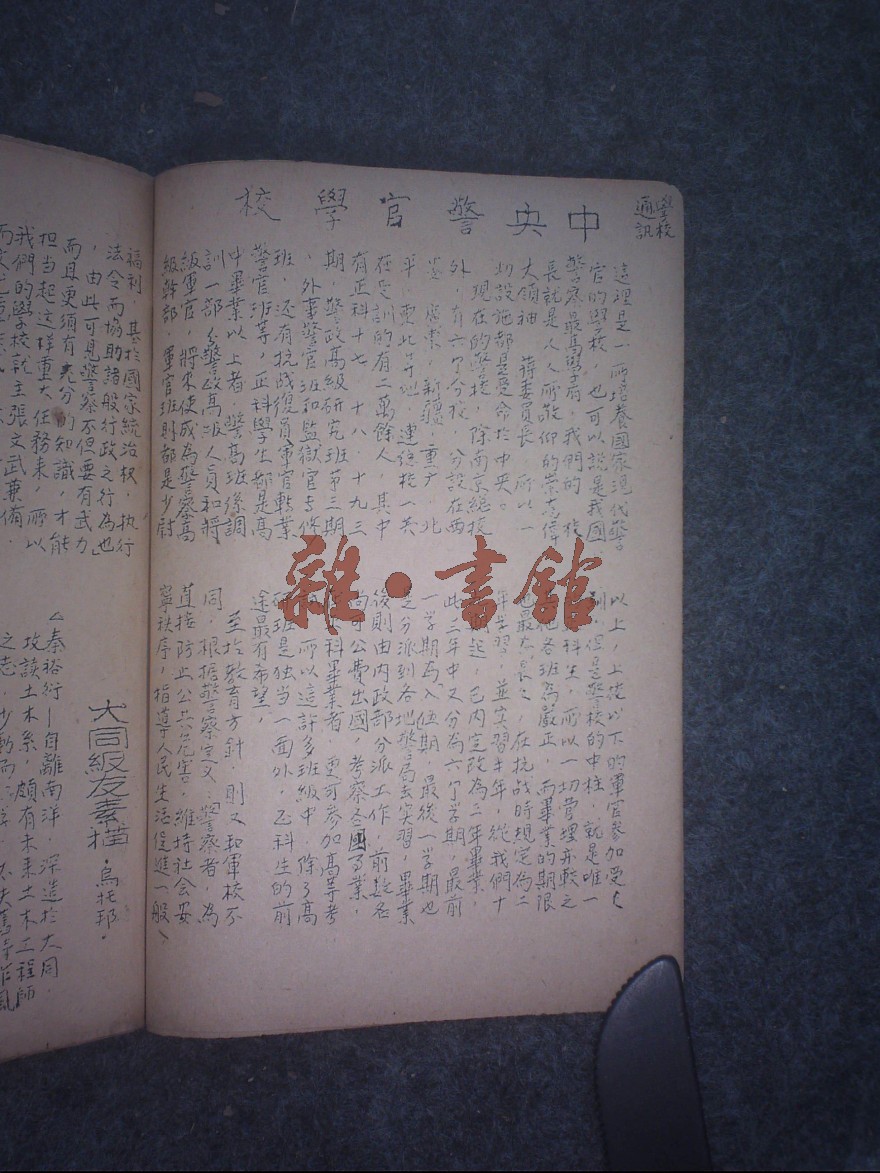 學校
通訊
中央警官學校
這理是一所培養國家現代警
官的學校,也可以說是我國
警察最高學府,我們的校
長就是人人所敬仰的崇高偉
大領袖 蔣委員長 所以一
切設施都是受命於中央。
現在的警校,除南京總校
外,有六个分校,分設在西
廣東,新疆,重慶,北
平,臺北等地,連總校一共
在受訓的有二萬餘人,其中
有正科十七、十八、十九三
期,警政高級研究班第三期
,外事警官班和監獄官專修
班 还有抗战復員軍官轉業
警官班等,正科學生都是高
中畢業以上者 警高班係調
訓一部份警政高級人員和將
級軍官,將來使成為警察高
級幹部 軍官班則都是少尉
以上,上校以下的軍官参加受
訓,但是警校的中柱,就是唯一
正科生,所以一切管理亦較之
其他各班為嚴正,而畢業的期限
也最為長久,在抗战時規定為二
年學習,並实習半年,從我們十
起,已內定改為三年畢業,
此三年中又分為六个學期,最前
一學期為入伍期,最後一學期也
是分派到各地警局去实習,畢業
後則由內政部分派工作,前数名
尚可公費出國,考察各國事業,
正科畢業者,更可参加高等考
所以這許多班級中,除了高
研班是独当一面外,正科生的前
途最有希望,
至於教育方針,則又和軍校不
同,根据警察定义:警察者,為
直接防止公共危害,維持社会安
寧秩序,指導人民生活促進一般
福利 基於國家統治权,执行
法令而協助諸般行政之行為也」
,由此可見警察不但要有武力
而且更須有充分的知識,才能
担当起这样重大任務来,所以
我們的學校就主張文武兼備,
大同級友素描 · 烏托邦 ·
△秦裕衍—自離南洋,深造於大同,
攻讀土木系,頗有未来土木工程師
之志,少動而
雜·書館